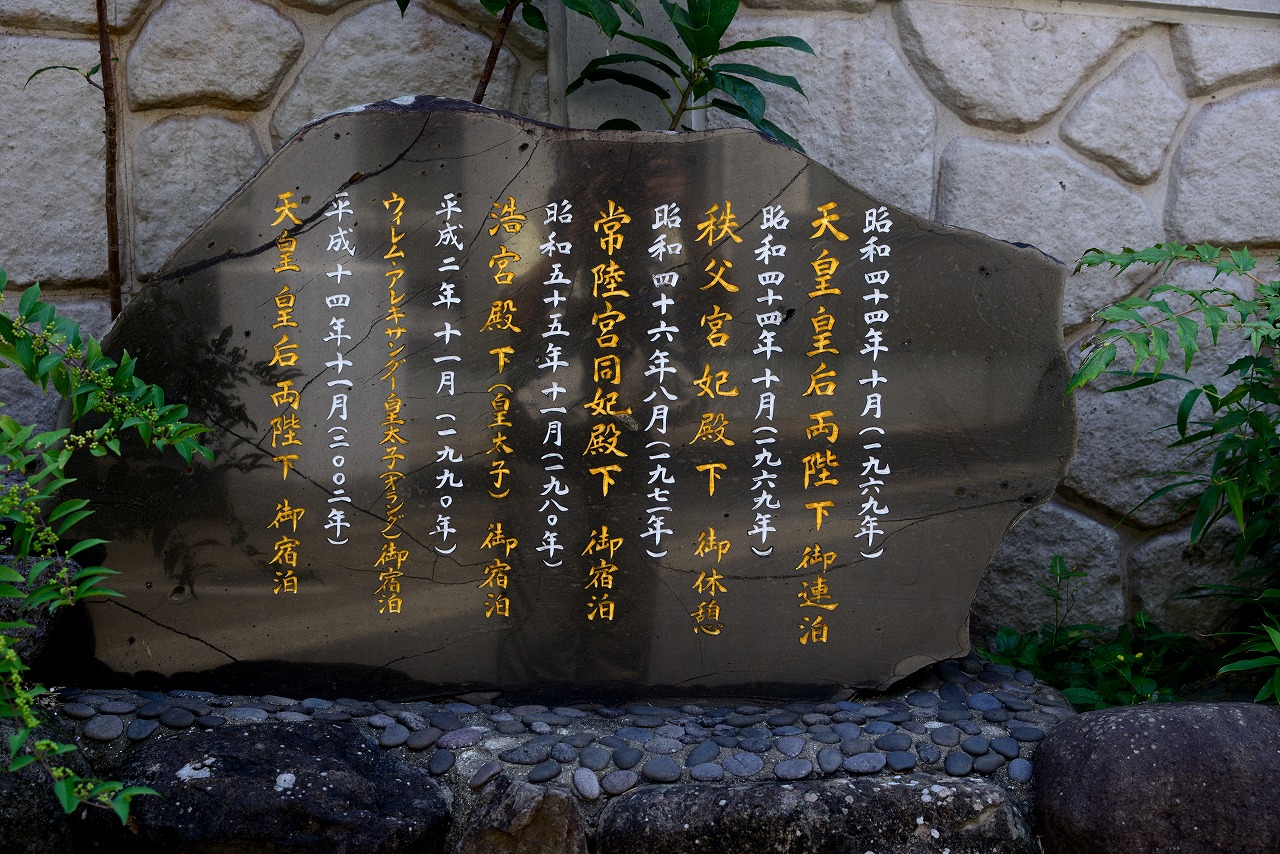 昭和四十四年十月(一九六九年)
天皇皇后両陛下 御連泊
昭和四十四年十月(一九六九年)
秩父宮妃殿下 御休憩
昭和四十六年八月(一九七一年)
常陸宮同妃殿下 御宿泊
昭和五十五年十一月(一九八〇年)
浩宮殿下(皇太子)御宿泊
平成二年十一月(一九九〇年)
ウィレム・アレキサンダー皇太子(オランダ)御宿泊
平成十四年十一月(二〇〇二年)
天皇皇后両陛下 御宿泊